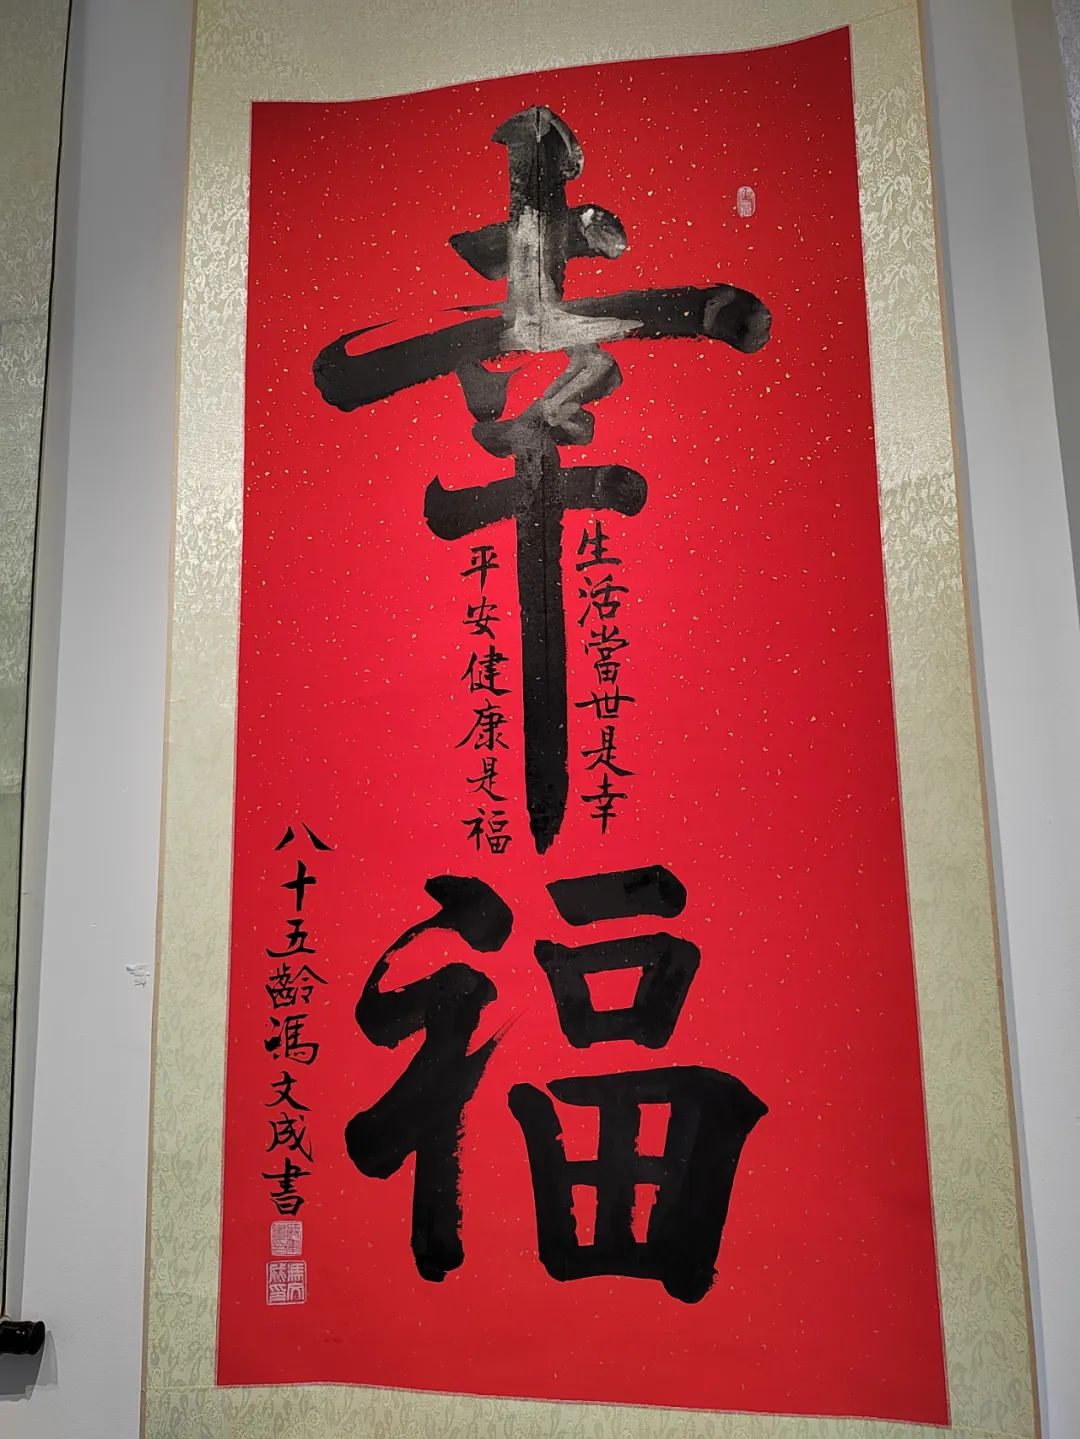 幸福
生活當世是幸
平安健康是福
八十五齡馮文成書